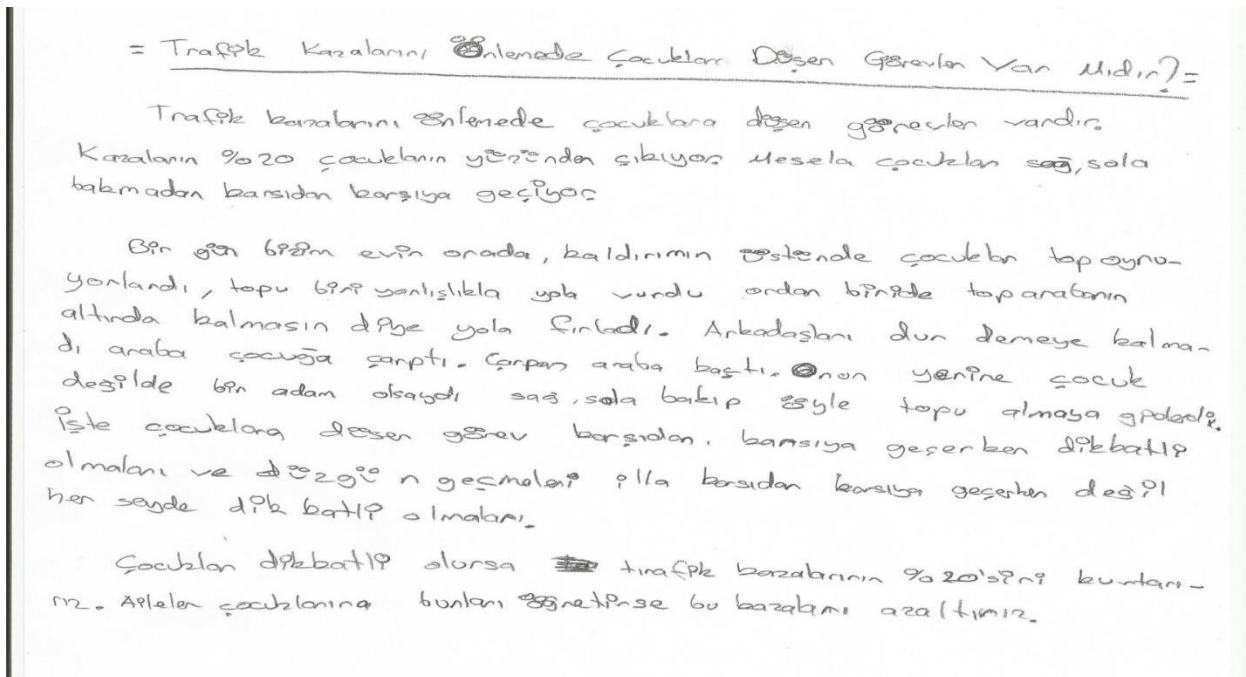 = Trafik Kazalarını Önlemede Çocuklara Düşen Görevler Var Mıdır? =
Trafik kazalarını önlemede çocuklara düşen görevler vardır.
Kazaların %20 çocukların yüzünden çıkıyor. Mesela çocuklar sağ, sola
bakmadan karsıdan karşıya geçiyor.
Bir gün bizim evin orada, kaldırımın üstünde çocuklar top oynu-
yorlardı, topu biri yanlışlıkla yola vurdu ordan biride top arabanın
altında kalmasın diye yola fırladı. Arkadaşları dur demeye kalma-
dı araba çocuğa çarptı. Çarpan araba kaçtı. Onun yerine çocuk
değilde bir adam olsaydı sağ, sola bakıp öyle topu almaya giderdi.
İşte çocuklara düşen görev karşıdan, karsıya geçerken dikkatli
olmaları ve düzgün geçmeleri illa karsıdan karsıya geçerken değil
her seyde dikkatli olmaları.
Çocuklar dikkatli olursa tırafik kazalarının %20'sini kurtarı-
rız. Aileler çocuklarına bunları öğretirse bu kazaları azaltırız.